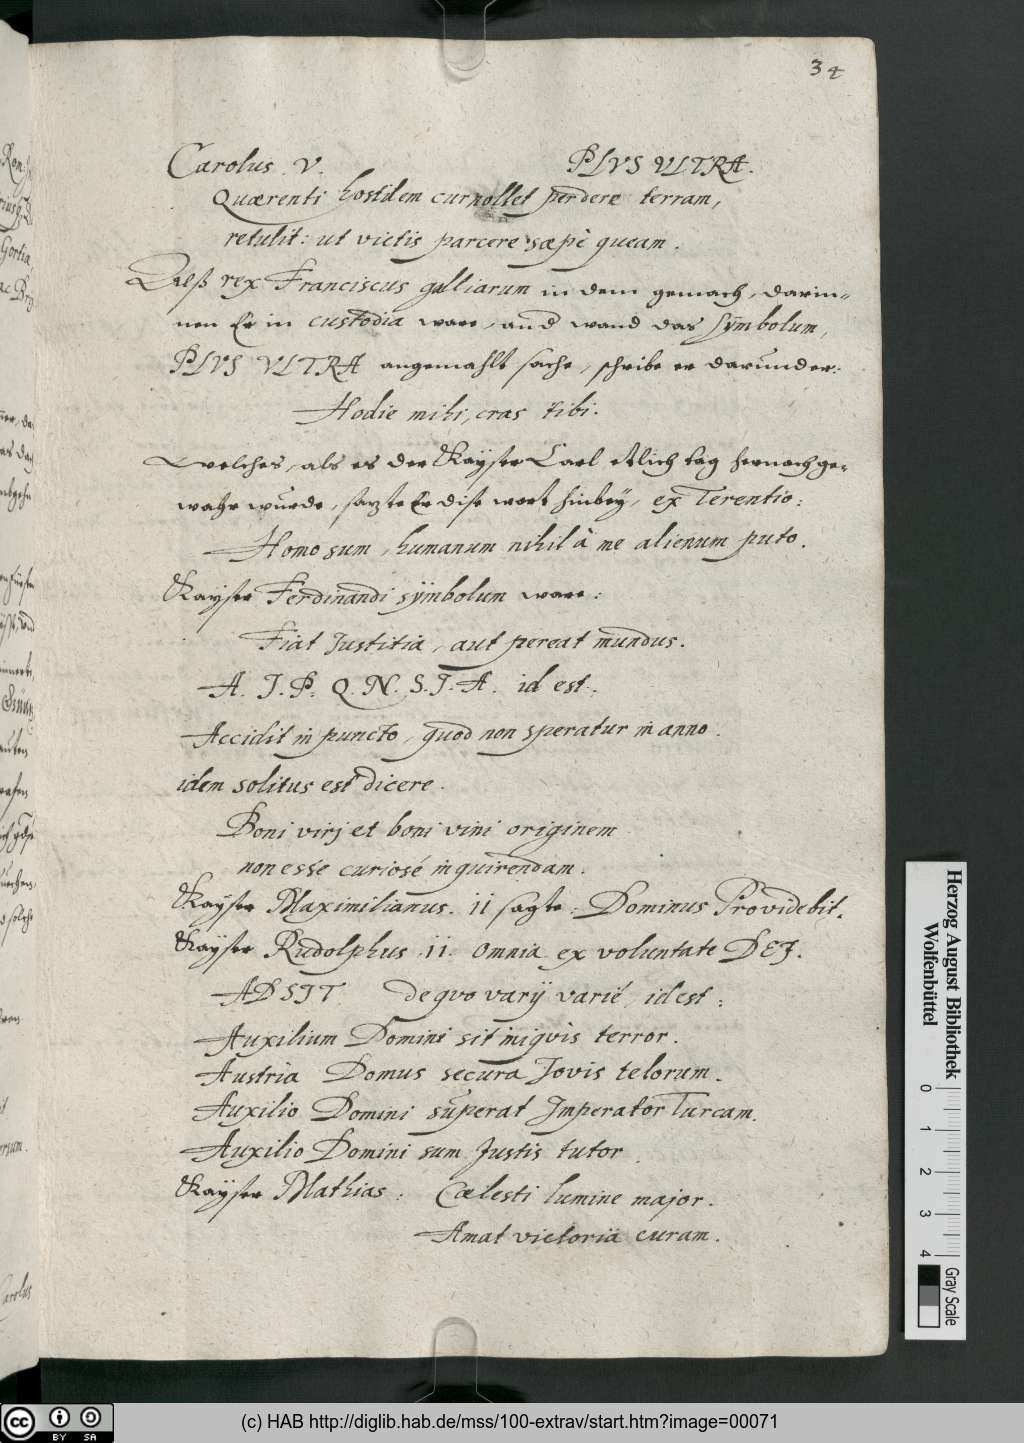 34
Carolus V. PLVS VLTRA.
Quærenti hostilem cur nollet perdere terram,
retulit: ut victis parcere sæpè queam.
Alß rex Franciscus galliarum in dem gemach, darin-
nen Er in custodia ware, and wand das sÿmbolum,
PLVS VLTRA angemahlt sahe, schribe er darunder:
Hodie mihi, cras tibi.
welches, als es der Kaÿser Carl etlich tag hernach ge-
wahr wurde, sazte Er dise wort hinbeÿ, ex Terentio:
Homo sum, humanum nihil à me alienum puto.
Kayser Ferdinandi sÿmbolum ware:
Fiat Justitia, aut pereat mundus.
A. J. P. Q. N. S. J. A. id est.
Accidit in puncto, quod non speratur in anno.
idem solitus est dicere.
Boni virj et boni vini originem
non esse curiosé inquirendam.
Kayser Maximilianus. II sagte: Dominus Providebit.
Kaÿser Rudolphus .II. omnia ex voluntate DEJ.
ADSJT de qvo varÿ varié, id est:
Auxilium Domini sit iniqvis terror.
Austria Domus secura Jovis telorum.
Auxilio Domini superat Jmperator Turcam.
Auxilio Domini sum Justis tutor.
Kaÿser Mathias: Cœlesti lumine major.
Amat victoria curam.
Herzog August Bibliothek
Wolfenbüttel
0 1 2 3 4
Gray Scale
cc BY SA
(c) HAB http://diglib.hab.de/mss/100-extrav/start.htm?image=00071